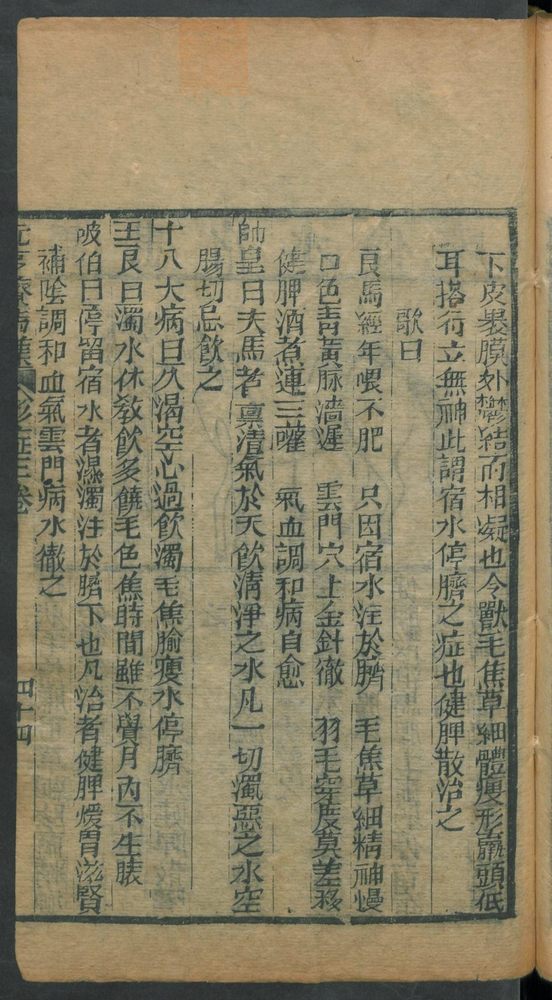 下皮裹膜外鬱結而相凝也令獸毛焦草細體瘦形羸頭低
耳搭行立無神此謂宿水停臍之症也健脾散治之
歌曰
良馬經年喂不肥　只因宿水注於臍　毛焦草細精神慢
口色青黃脉濇遲　雲門穴上金針徹　羽毛穿度莫差移
健脾酒煮連三嚾　氣血調和病自愈
師皇曰夫馬者稟清氣於天飲清淨之水凡一切濁惡之水空
腸切忌飲之
十八大病曰久渴空心過飲濁毛焦腧瘦水停臍
王良曰濁水休教飲多饒毛色焦時間雖不覺月內不生膘
岐伯曰停留宿水者濕濁注於臍下也凡治者健脾煖胃滋腎
補陰調和血氣雲門病水徹之
元亨療馬集　卷
四十四